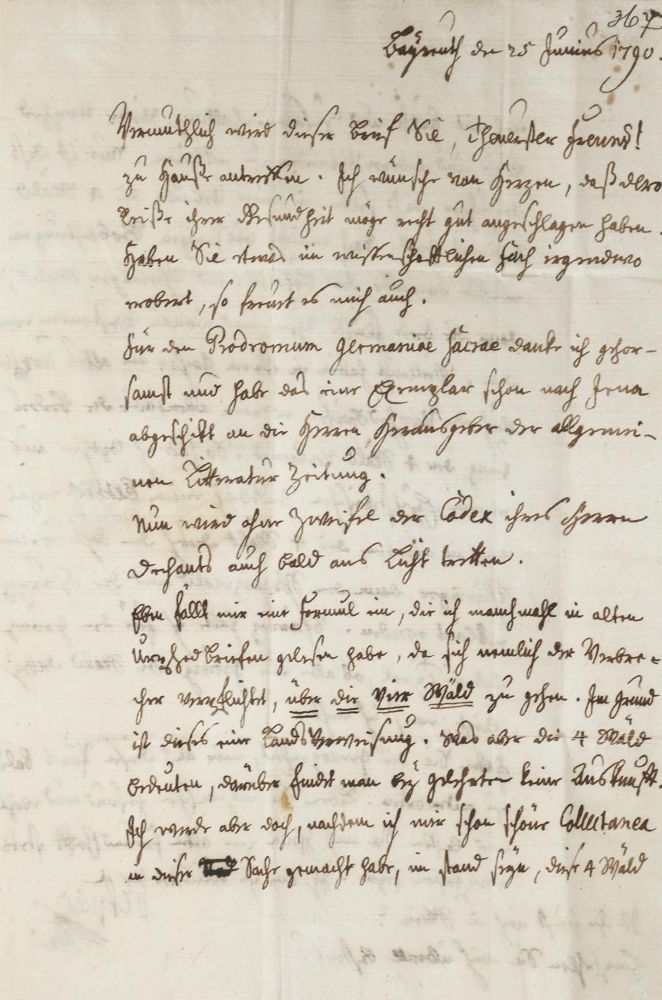 367
Bayreuth den 25 Junius 1790.
Vermuthlich wird dieser Brief Sie, Theuerster Freund!
zu Hauße antreffen. Ich wünsche von Herzen, daß dero
Reiße ihrer Gesundheit möge recht gut angeschlagen haben.
Haben Sie etwas im wissenschaftlichen Fach irgendwo
erobert, so freut es mich auch.
Für den Prodromum Germaniae Sacrae danke ich gehor-
samst und habe das eine Exemplar schon nach Jena
abgeschikt an die Herren Herausgeber der allgemei-
nen Litteratur Zeitung.
Nun wird ohne Zweifel der Codex ihres Herrn
Dechants auch bald ans Licht tretten.
Eben fällt mir eine Formul ein, die ich manchmahl in alten
Urphed briefen gelesen habe, da sich nemlich der Verbre-
cher verpflichtet, über die vier Wäld zu gehen. Im Grund
ist dieses eine Landsverweisung. Was aber die 4 Wäld
bedeuten, darüber findet man bey gelehrten keine Auskunft.
Ich werde aber doch, nachdem ich mir schon schöne Collectanea
in dieser Sache gemacht habe, im stand seyn, diese 4 Wäld